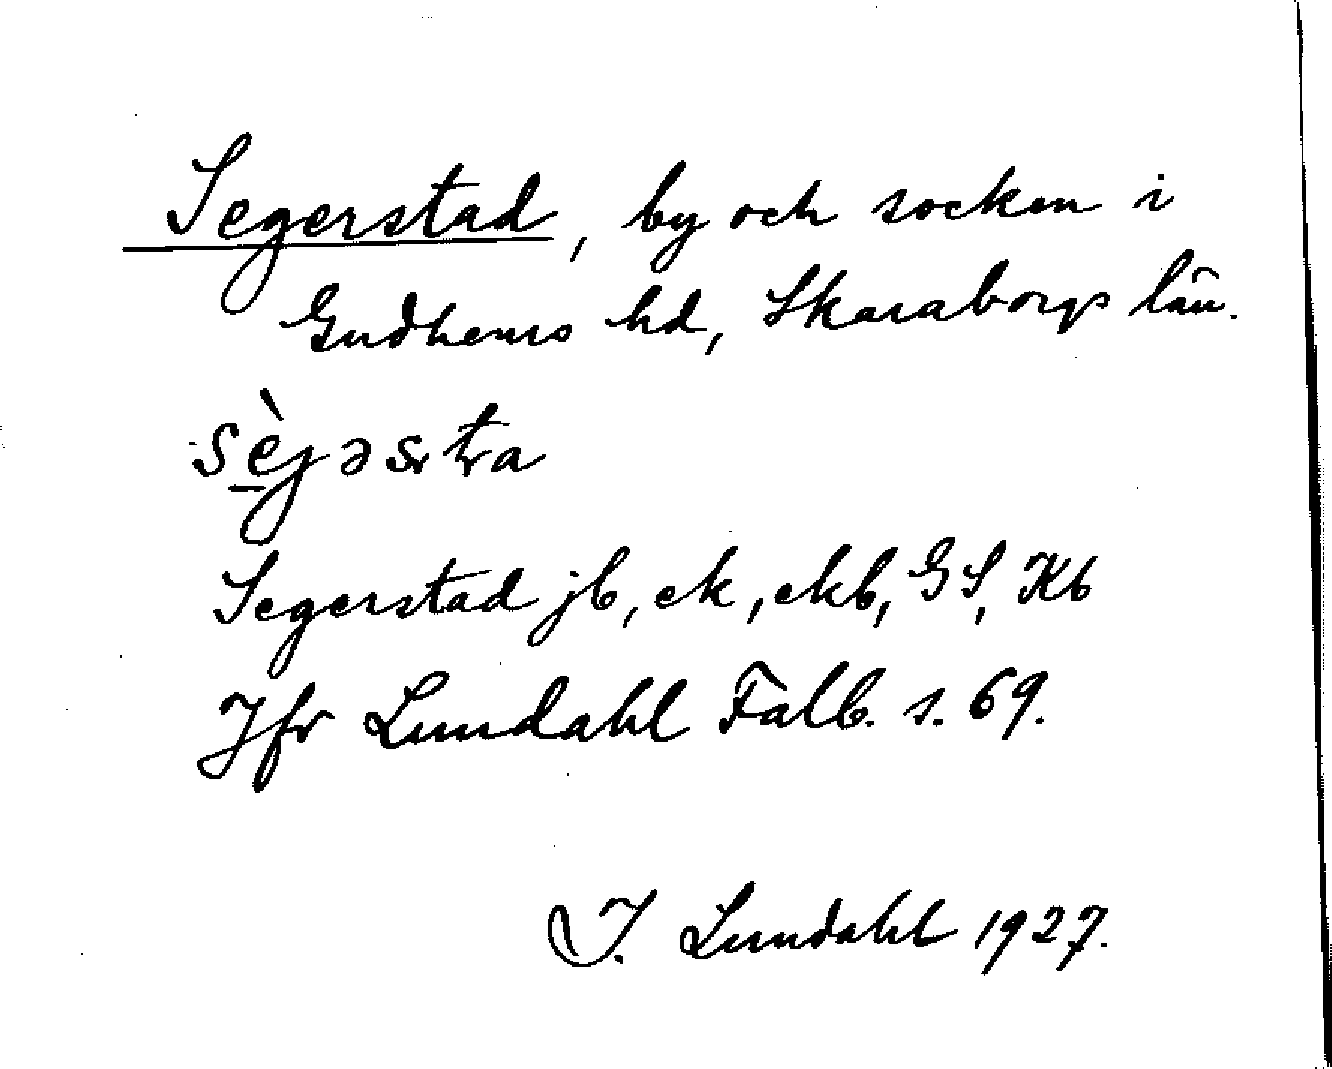 Segerstad, by och socken i
Gudhems hd, Skaraborgs län.
sè̱jəstra
Segerstad jb, ek, ekb, GS, Kb
Jfr Lundahl Falb. s. 69.
I. Lundahl 1927.